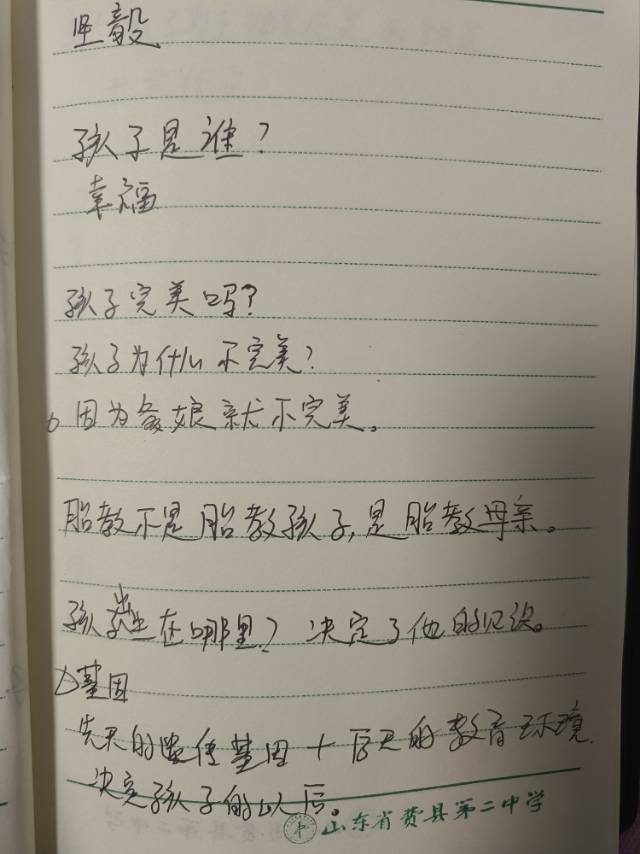 坚毅
孩子是谁?
幸福
孩子完美吗?
孩子为什么不完美?
因为爹娘就不完美。
胎教不是胎教孩子,是胎教母亲。
孩子出生在哪里? 决定了他的见识。
基因
先天的遗传基因+后天的教育环境.
决定孩子的以后。
山东省费县第二中学